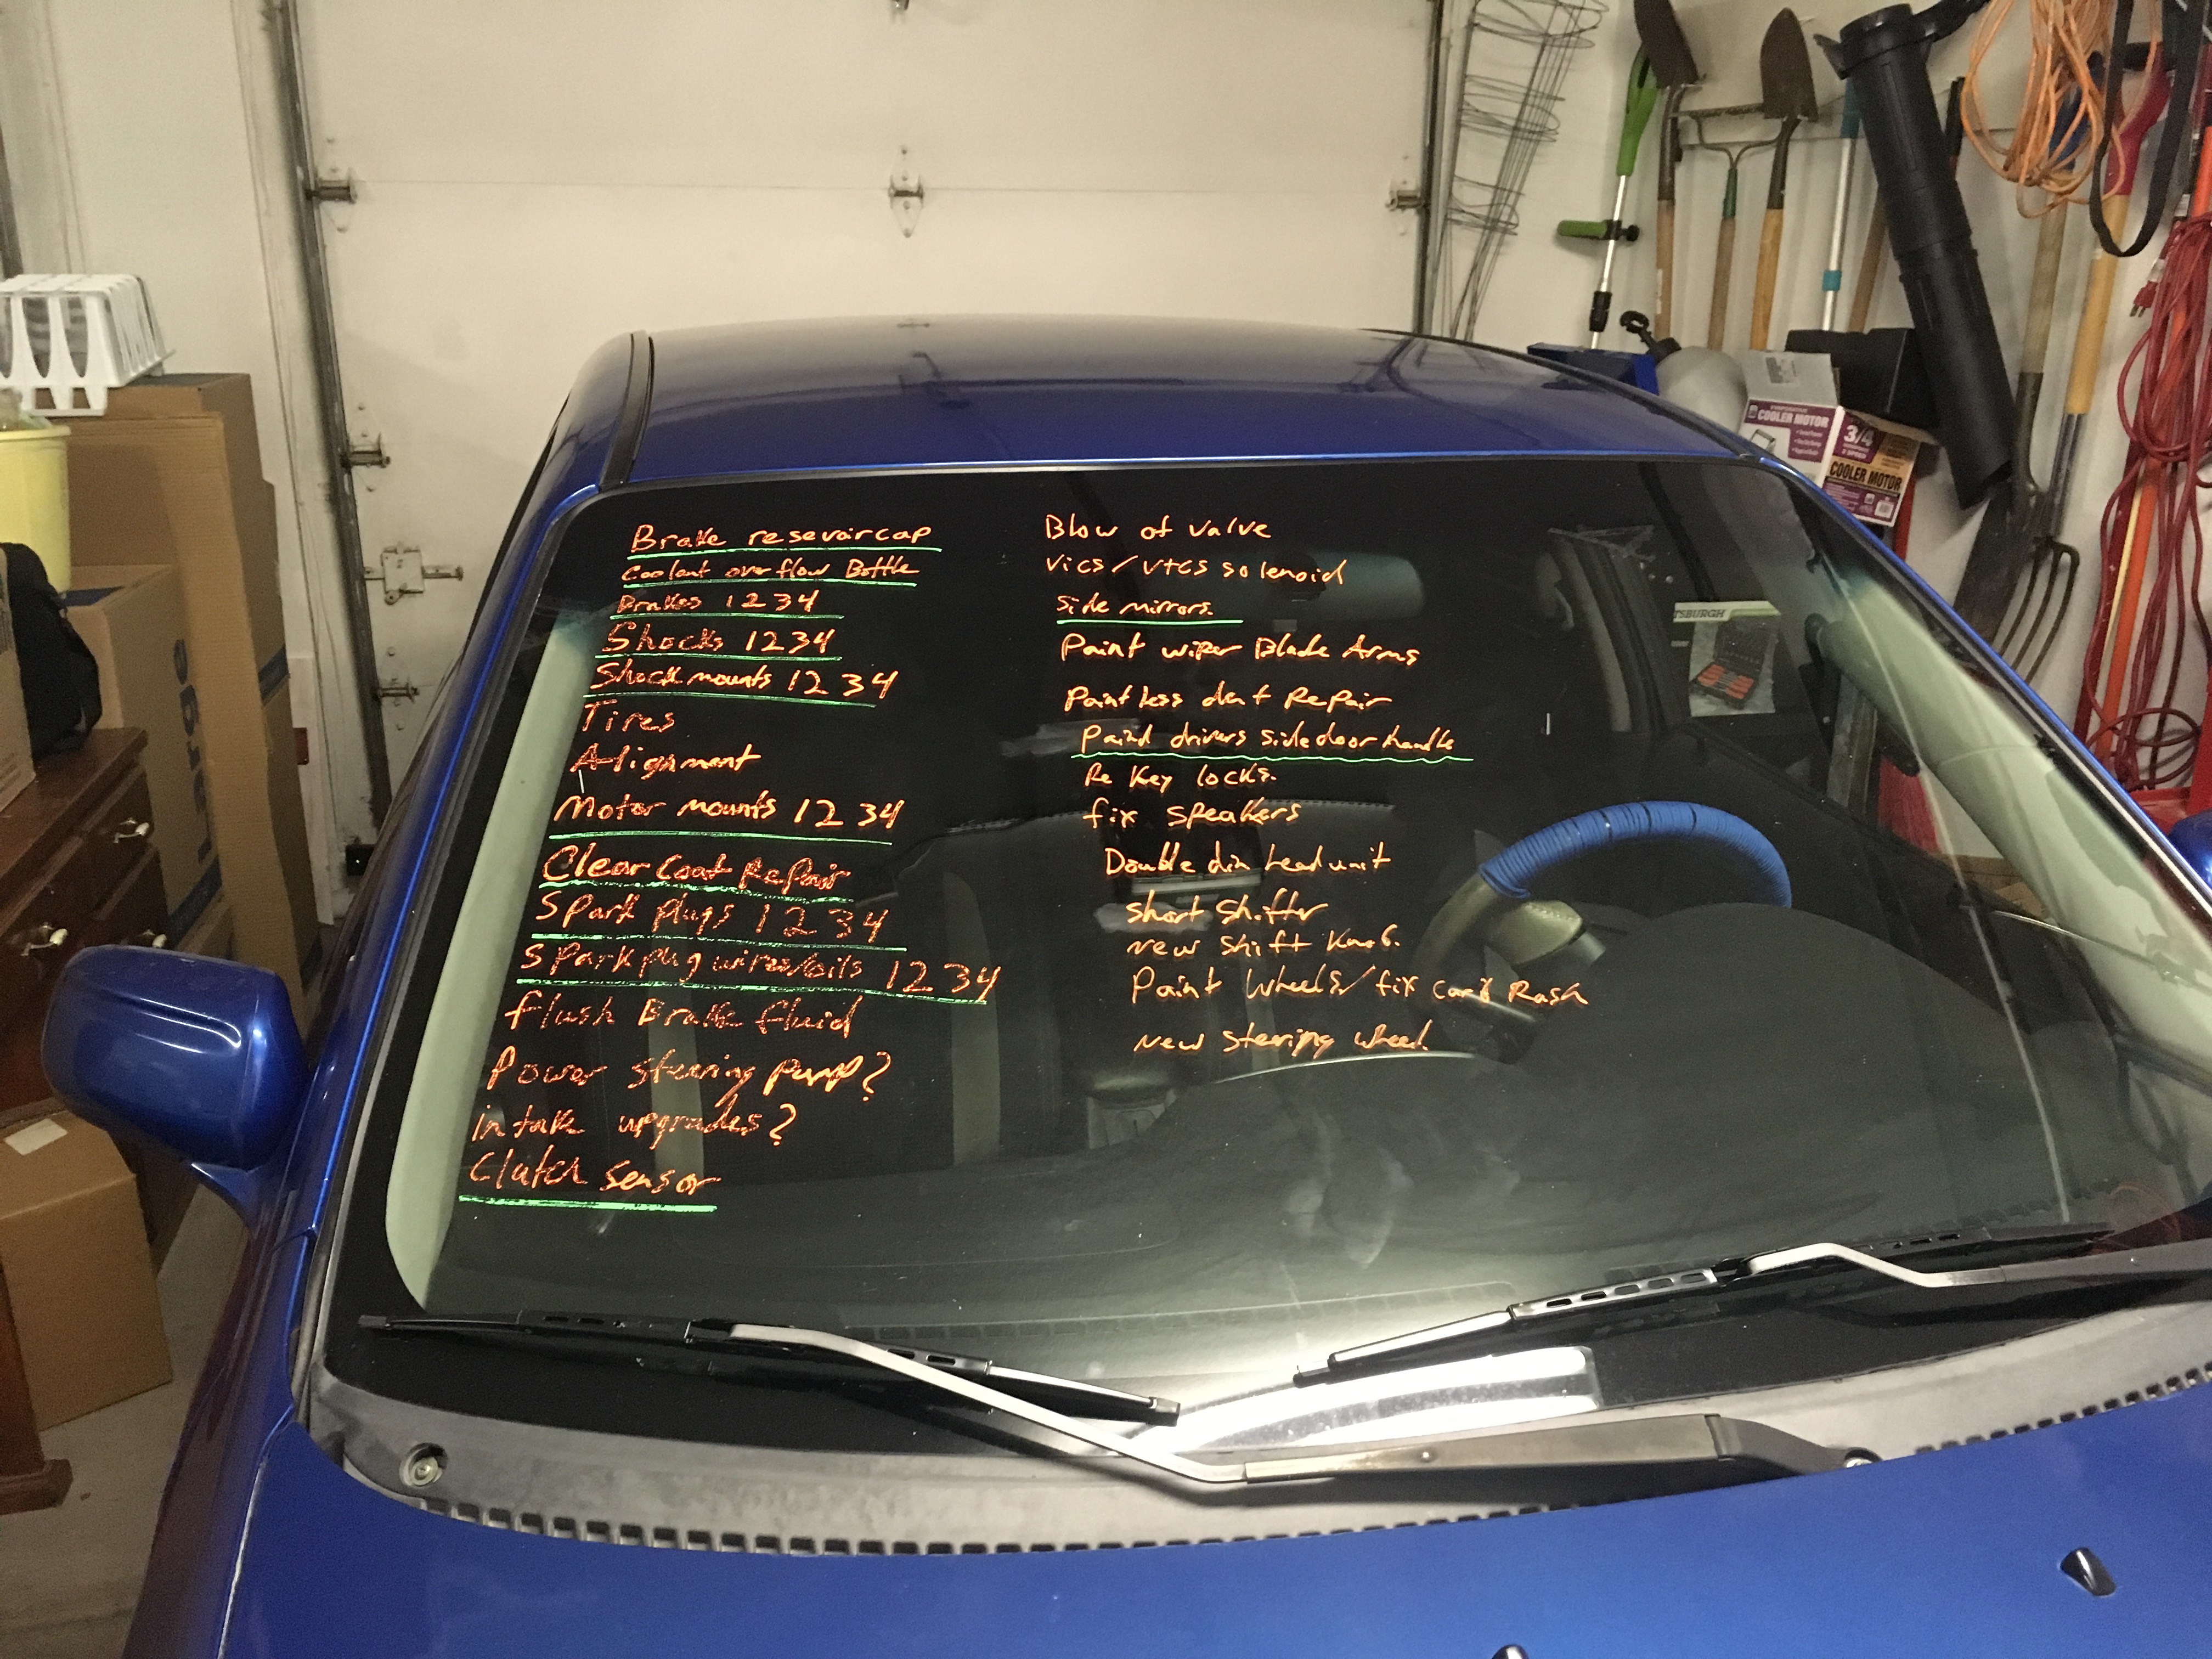 Brake resevoir cap
Coolant overflow Bottle
Brakes 1 2 3 4
Shocks 1 2 3 4
Shock mounts 1 2 3 4
Tires
Alignment
Motor mounts 1 2 3 4
Clear Coat Repair
Spark plugs 1 2 3 4
Spark plug wires/coils 1 2 3 4
flush Brake fluid
Power steering pump?
intake upgrades?
Clutch sensor
Blow of valve
Vics/vtcs solenoid
Side mirrors
Paint wiper Blade Arms
Paintless dent Repair
Paint drivers side door handle
Re Key locks.
fix speakers
Double din head unit
Short Shifter
new shift Knob.
Paint Wheels/fix Rash
New steering wheel
TSBURGH
COOLER MOTOR
3/4
COOLER MOTOR